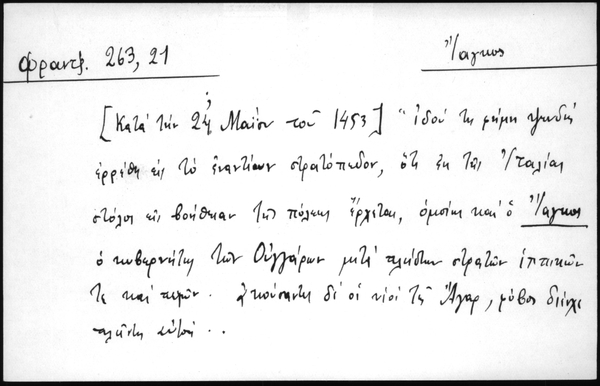 Φραντζ. 263, 21
Ἴαγκος
[Κατὰ τὴν 24 Μαΐου τοῦ 1453] "ἰδού τις φήμη ψευδὴς
ἐρρέθη εἰς τὸ ἐναντίον στρατόπεδον, ὅτι ἐκ τῆς Ἰταλίας
στόλος εἰς βοήθειαν τῆς πόλεως ἔρχεται, ὁμοίως καὶ ὁ Ἴαγκος
ὁ κυβερνήτης τῶν Οὑγγάρων μετὰ πλείστων στρατῶν ἱππικῶν
τε καὶ πεζῶν. ἀκούσαντες δὲ οἱ υἱοὶ τῆς Ἄγαρ, φόβος διεῖχε
πλεῖστος αὐτούς..